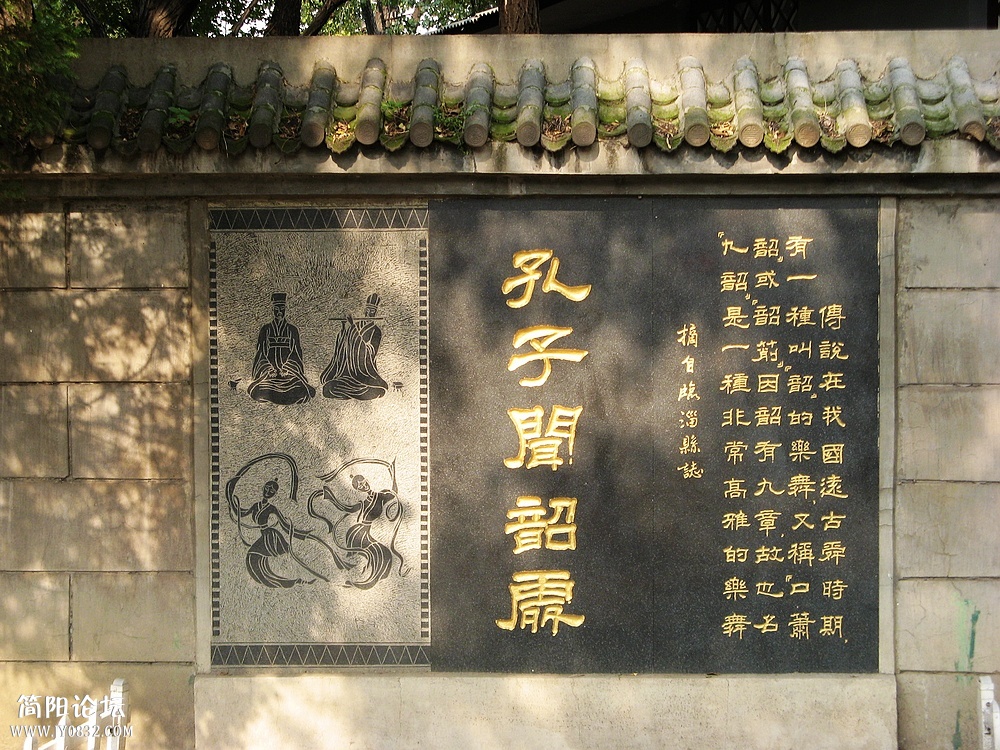 傳說在我國遠古舜時期,
有一種叫“韶”的樂舞,又稱“口簫
韶”或“韶箾”因韶有九章,故也名
“九韶”是一種非常高雅的樂舞
摘自臨淄縣誌
孔子聞韶處
简阳论坛
WWW.JY0832.COM